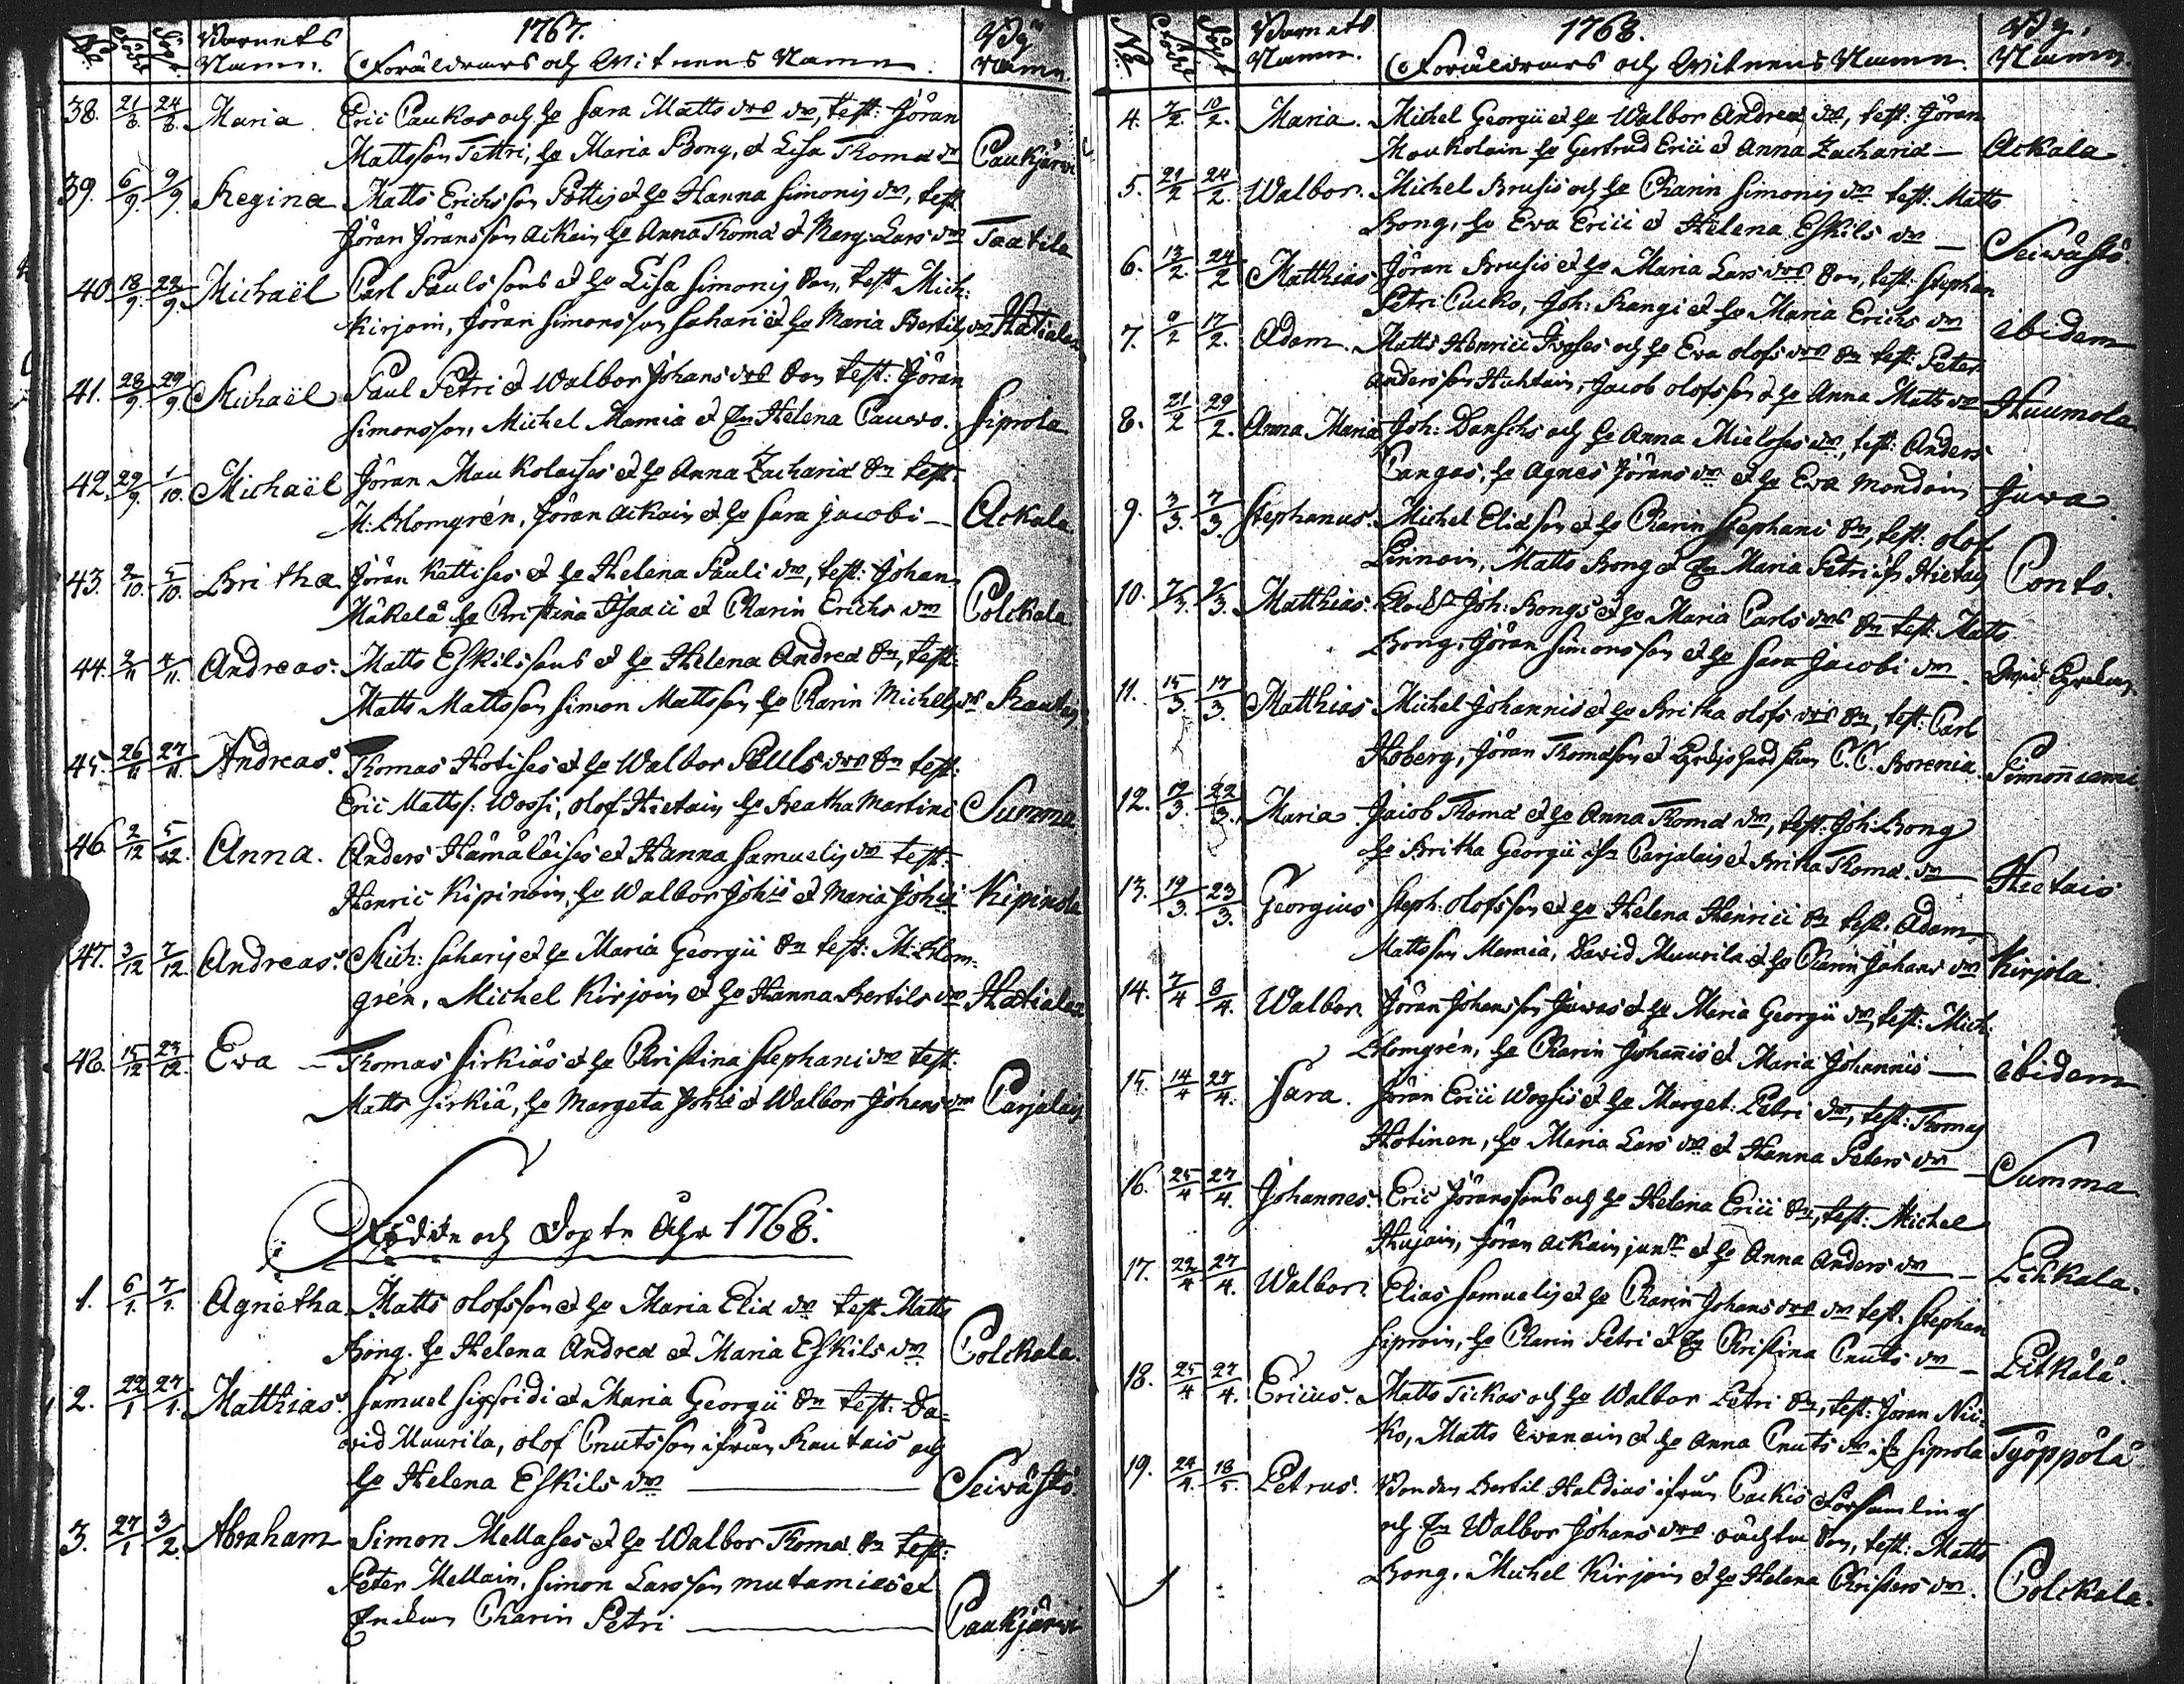 Barnets 1767. By
Namn. Föräldrars och Witnens Namn. namn
38. 21/8. 24/8. Maria Eric Paukas och h. Sara Matts dr. dr, test: Jöran
Mattsson Tettri, h. Maria Bong, et Lisa Thomæ dr Paukjärvi
39. 6/9. 9/9. Regina Matts Erichsson Pöttis et h. Hanna Simonis dr, test.
Jöran Jöransson Ackain h. Anna Thomæ et Marg: Lars dr Taatila
40 18/9. 22/9. Michaël Carl Paulssons et h. Lisa Simonis dr, test Mich:
Kirjoin, Jöran Simonsson Sahari et h. Maria Bertils dr Hatiala
41. 28/9. 29/9. Michaël Paul Petri et Walbor Johans dr. dr test: Jöran
Simonsson, Michel Mamia et Helena Pauwo. Siprola
42. 29/9. 1/10. Michaël Jöran Maukolaises et h. Anna Zachariæ dr test.
M: Blomgrén, Jöran Ackain et h. Sara Jacobi — Ackala
43. 2/10. 5/10. Britha Jöran Kattises et h. Helena Pauli dr, test: Johan
Mäkelä h. Christina Isaaci et Charin Erichs dr Colckala
44. 2/11 4/11. Andreas. Matts Eskilssons et h. Helena Andreæ dr, test:
Matts Mattsson Simon Mattsson h. Charin Michels dr Rautis
45. 26/11 27/11. Andreas. Thomas Hotises et h. Walbor Pauls dr. dr test:
Eric Mattss: Wossi, Olof Hietain h. Beatha Martini Summa
46. 2/12 5/12. Anna. Anders Hämäläises et Hanna Samuelis dr test.
Henric Kipinoin, h. Walbor Johis et Maria Johis Kipinola
47. 3/12 7/12. Andreas. Mich: Saharis et h. Maria Georgii dr test: M: Blom-
grén, Michel Kirjoin et h. Hanna Bertils dr Hatiala
48. 15/12 23/12. Eva — Thomas Sirkiäs et h. Christina Stephani dr test.
Matts Sirkiä, h. Margeta Johis et Walbor Johans dr Carjalais
Födde och Döpte Åhr 1768.
1. 6/1. 7/1. Agnetha. Matts Olofsson et h. Maria Eliæ dr test. Matts
Bong. h. Helena Andreæ et Maria Eskils dr Colckala.
2. 22/1 27/1. Matthias. Samuel Sigfridi et Maria Georgii dr test: Da-
vid Muurila, Olof Cnutsson ifrån Rautais och
h. Helena Eskils dr — Seivästö.
3. 27/1 3/2. Abraham Simon Mellases et h. Walbor Thomæ dr test:
Peter Mellain, Simon Larsson mutamies et
Enckan Charin Petri — Paukjärvi
No Född Döpt Barnets 1768. By,
Namn. Föräldrars och Witnens Namn. Namn.
4. 7/2. 10/2. Maria. Michel Georgii et h. Walbor Andreæ dr, test: Jöran
Maukolain h. Gertrud Ericii et Anna Zachariæ — Ackala
5. 21/2 24/2. Walbor. Michel Brusis och h. Charin Simonis dr test: Matts
Bong, h. Eva Ericii et Helena Eskils dr — Seivästö.
6. 13/2. 24/2 Matthias Jöran Brusis et h. Maria Lars dr. dr, test: Stephan
Petri Cucko, Joh: Rangi et h. Maria Erichs dr ibidem
7. 9/2 17/2. Adam. Matts Henrici et h. Eva Olofs dr. dr test: Peter
Andersson Huhtain, Jacob Olofsson et h. Anna Matts dr Huumola
8. 21/2 29/2. Anna Maria Joh: Danschs och h. Anna dr, test: Anders
Pangas, h. Agnes Jörans dr et h. Eva Mondoin Juva
9. 3/3. 7/3 Stephanus. Michel Eliæson et h. Charin Stephani dr, test: Olof
Pinnoin, Matts Bong et Maria Petri ifr Hietais Ponto.
10. 7/3. 9/3. Matthias. Joh: Bongs et h. Maria Carls dr. dr test: Matts
Bong, Jöran Simonsson et h. Sara Jacobi dr.
11. 15/3. 17/3. Matthias Michel Johannis et h. Britha Olofs dr. dr, test: Carl
Hoberg, Jöran Thomæson et C.C. Borenia.
12. 19/3. 22/3. Maria Jacob Thomæ et h. Anna Thomæ dr, test: Joh: Bong
h. Britha Georgii ifr Carjalais et Britha Thomæ dr — Hietais
13. 19/3. 23/3. Georgius Steph: Olofsson et h. Helena Henrici dr test. Adam
Mattsson Mamia, David Muurila et h. Charin Johans dr Kirjola.
14. 7/4 8/4. Walbor. Jöran Johansson Juvas et h. Maria Georgii dr, test: Mich:
Blomgrén, h. Charin Johannis et Maria Johannis — ibidem
15. 14/4 27/4. Sara. Jöran Ericii Wossis et h. Marget: Petri dr, test: Thomas
Hotinen, h. Maria Lars dr et Hanna Peters dr — Summa
16. 25/4 27/4. Johannes. Eric Jöranssons och h. Helena Ericii dr, test: Michel
Hujain, Jöran Ackain junr et h. Anna Anders dr — Pihkala.
17. 22/4 27/4. Walbor. Elias Samuelis et h. Charin Johans dr. dr test. Stephan
Siproin, h. Charin Petri et Christina Cnuts dr — Pitkälä.
18. 25/4 27/4. Ericus. Matts Tickas och h. Walbor Petri dr, test: Jöran Nii-
ko, Matts Ewanain et h. Anna Cnuts dr ifr Siprola Työppölä
19. 24/4. 18/5. Petrus. Bonden Bertil Haldias ifrån Packis Församling
och Walbor Johans dr. oächta dr, test: Matts
Bong, Michel Kirjoin et h. Helena Christers dr. Colckala.